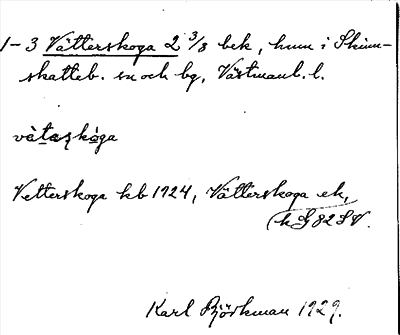 1-3 Vätterskoga 2 3/8 bek, hum i Skinn-
skatteb. sn och bg, Västmanl. l.
vä̀taskóga
Vetterskoga kb 1724, Vätterskoga ek,
(h G 82 S V.
Karl Björkman 1929.